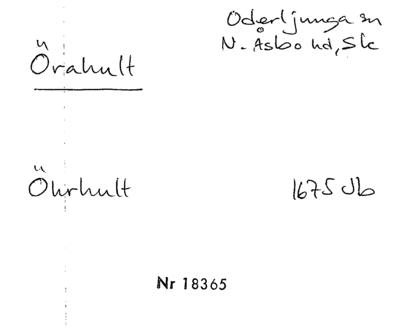 Örahult
Oderljunga sn
N. Åsbo hd, Sk
Öhrhult
1675 Jb
Nr 18365